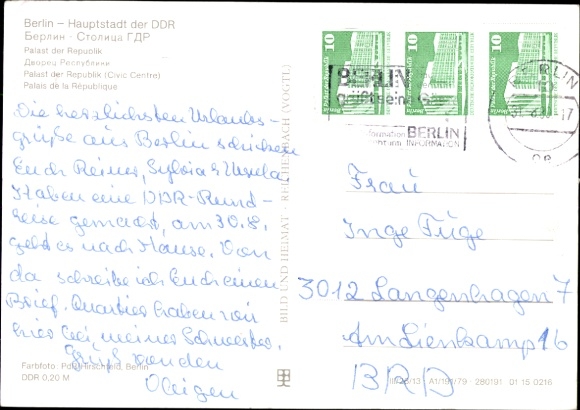 Berlin – Hauptstadt der DDR
Берлин · Столица ГДР
Palast der Republik
Дворец Республики
Palast der Republik (Civic Centre)
Palais de la République
Die herzlichsten Urlaubs-
grüße aus Berlin schicken
Euch Reiner, Sylvia & Ursula
Haben eine DDR-Rund-
reise gemacht, am 30.8.
geht es nach Hause. Von
da schreibe ich Euch einen
Brief. Quartier haben wir
hier bei meiner Schwester.
Grüße senden
Obigen
Farbfoto: Hirschfeld, Berlin
DDR 0,20 M
BILD UND HEIMAT · REICHENBACH (VOGTL)
10
10
10
BERLIN
BERLIN
INFORMATION
BERLIN
17
Frau
Inge Füge
3012 Langenhagen 7
Am Lienkamp 16
BRD
A1/191/79 280191 01 15 0216